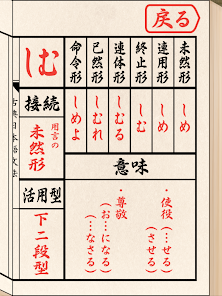 戻る
しむ
未然形
連用形
終止形
連体形
已然形
命令形
しめ
しめ
しむ
しむる
しむれ
しめよ
接続
用言の
未然形
活用型
下二段型
意味
・使役(…せる)
(させる)
・尊敬
(お…になる)
(…なさる)
古典日本語文法